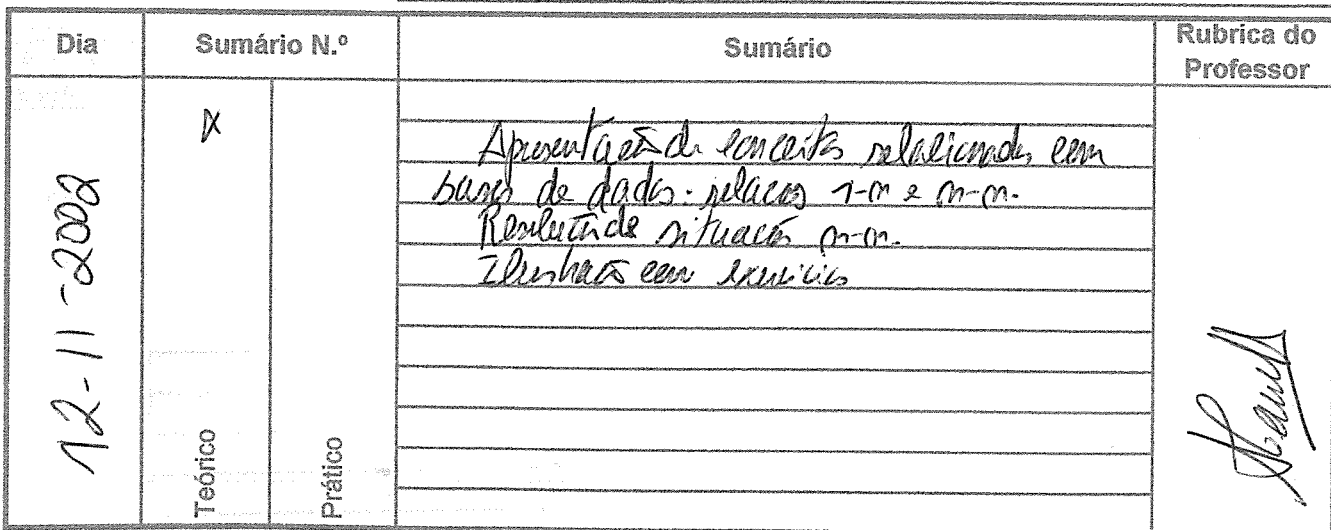 Dia
Sumário N.º
Sumário
Rubrica do
Professor
12-11-2002
X
Teórico
Prático
Apresentação de conceitos relacionados com
bases de dados: relações 1-n e n-n.
Resolução de situação n-n.
Ilustração com exercícios